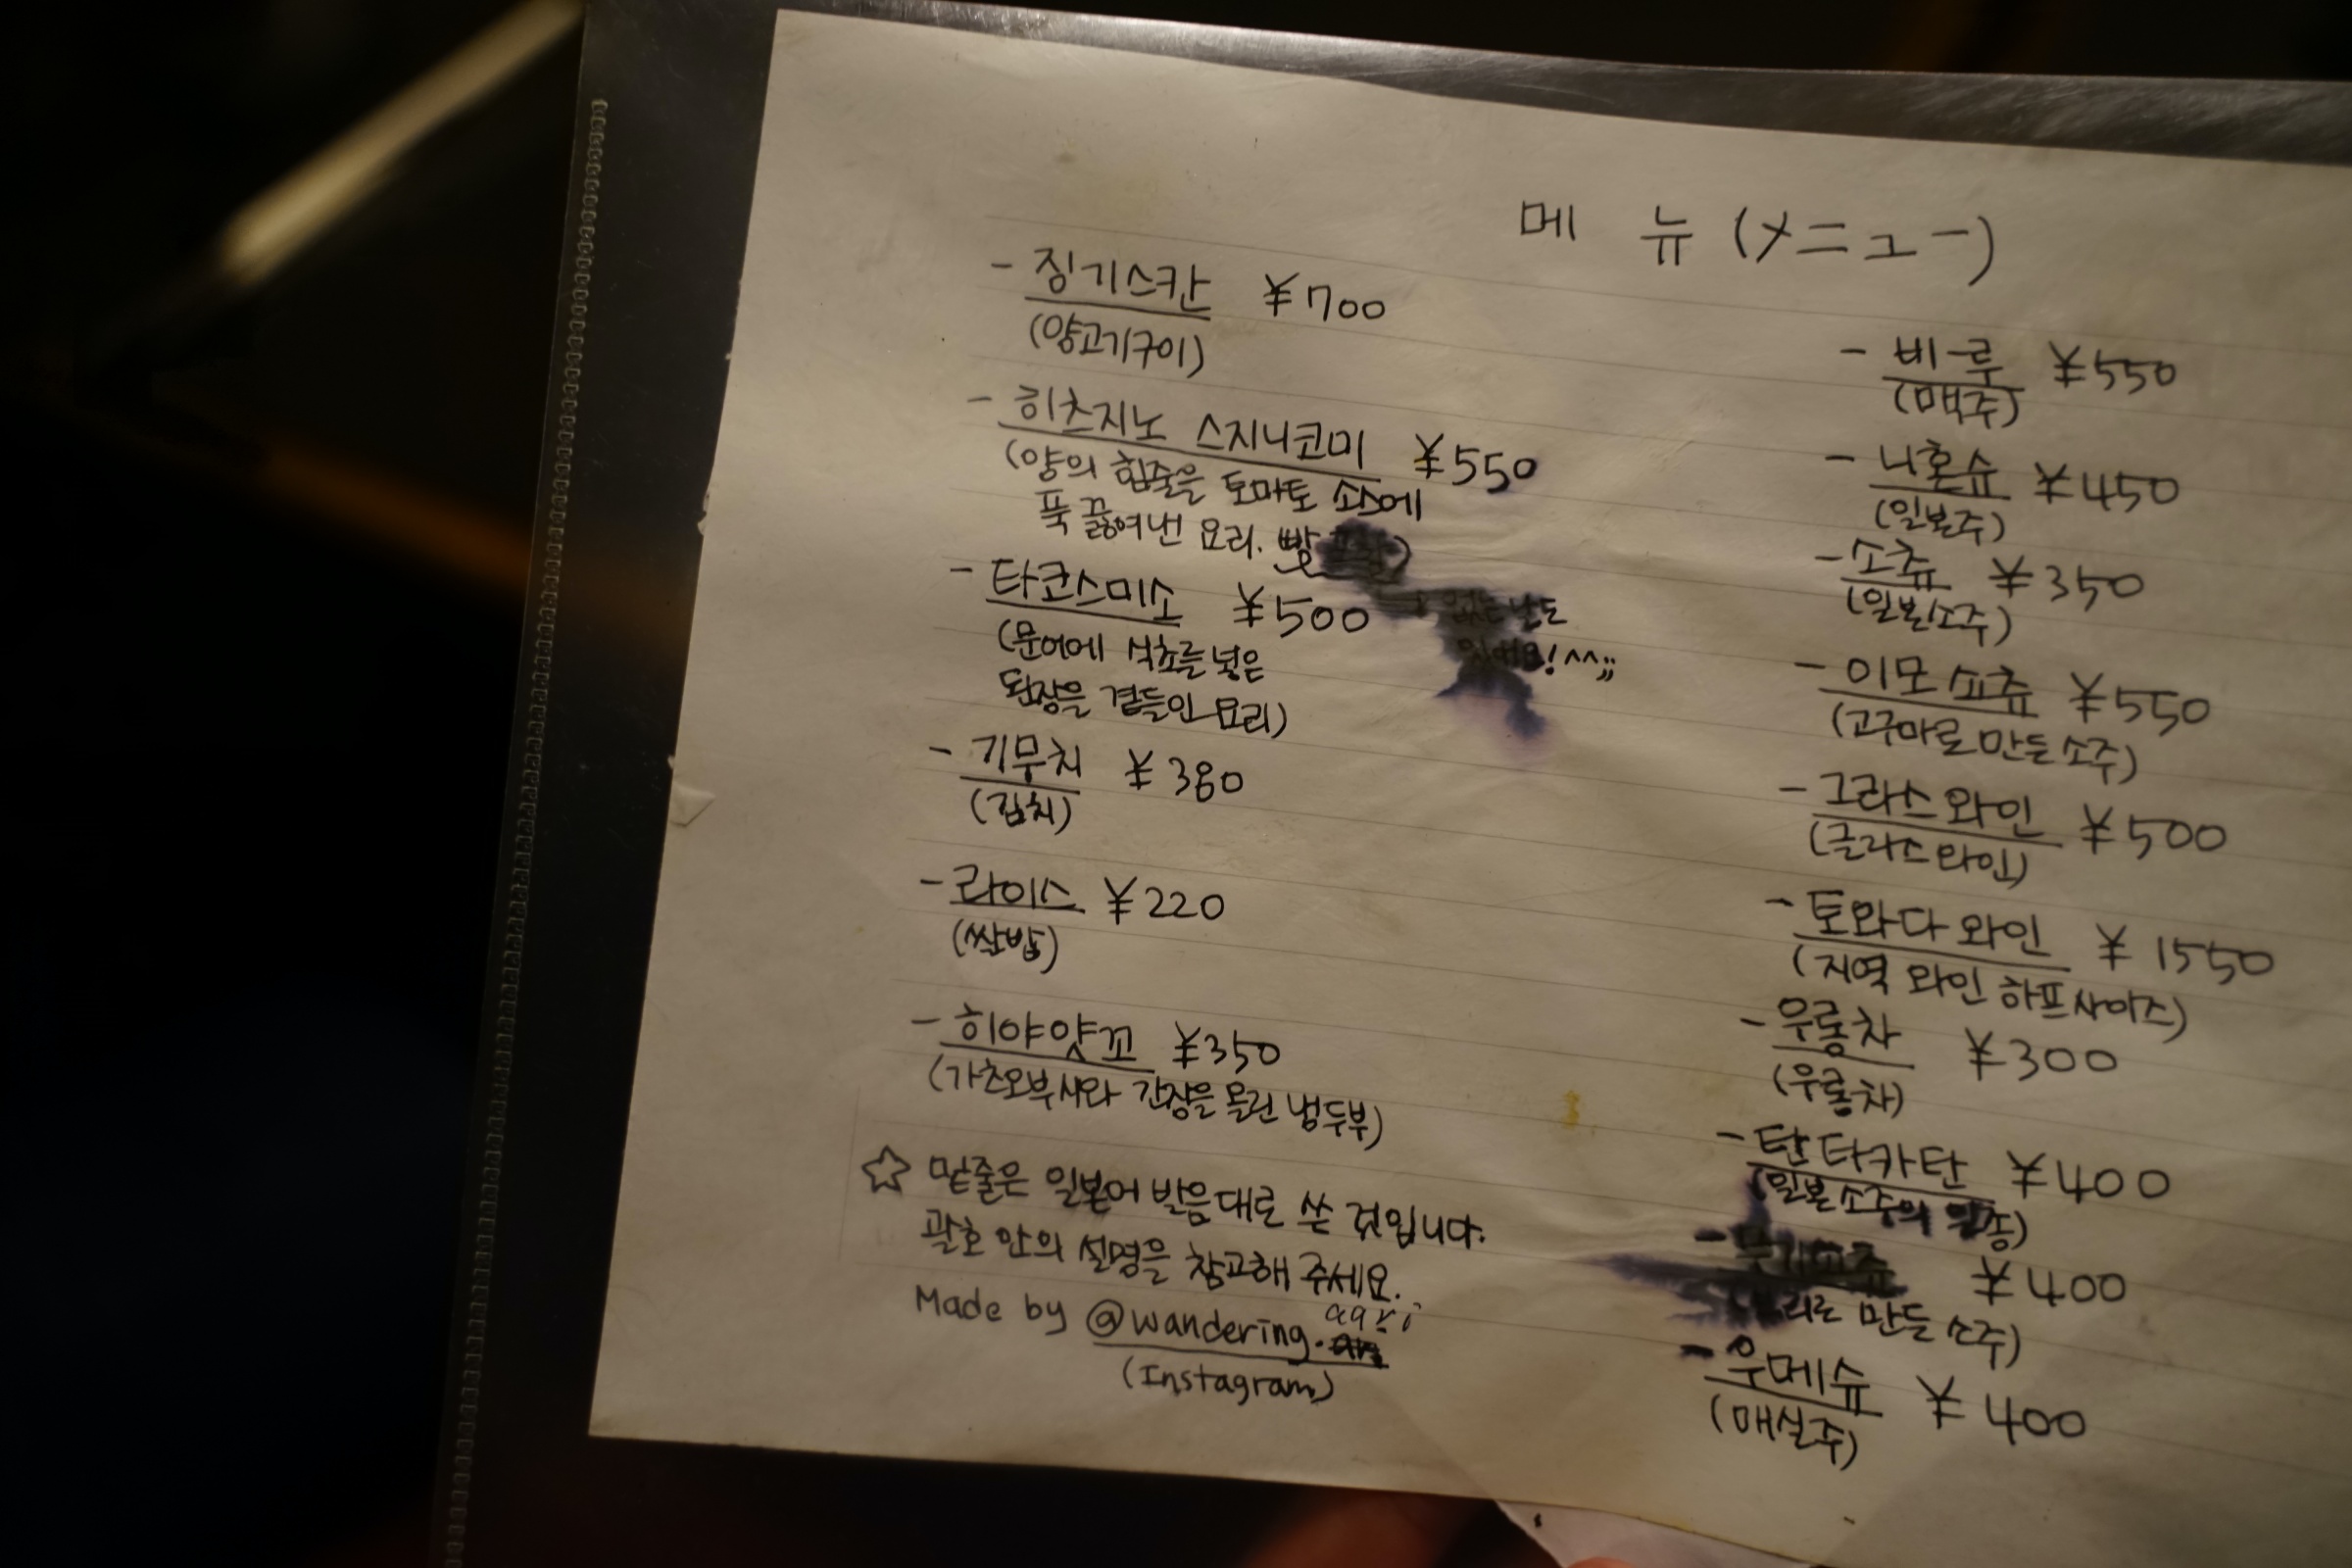 메 뉴 (メニュー)
- 징기스칸 ¥700
(양고기구이)
- 히츠지노 스지니코미 ¥550
(양의 힘줄을 토마토 소스에
푹 끓여낸 요리. 빵
- 타코스미소 ¥500
없는 날도
있어요! ^^;;
(문어에 식초를 넣은
된장을 곁들인 요리)
- 기무치 ¥380
(김치)
- 라이스 ¥220
(쌀밥)
- 히야얏꼬 ¥350
(가츠오부시와 간장을 올린 냉두부)
☆ 밑줄은 일본어 발음대로 쓴 것입니다.
괄호 안의 설명을 참고해 주세요.
Made by @wandering.aari
(Instagram)
- 비-루 ¥550
(맥주)
- 니혼슈 ¥450
(일본주)
- 소츄 ¥350
(일본소주)
- 이모 쇼츄 ¥550
(고구마로 만든 소주)
- 그라스 와인 ¥500
(글라스 와인)
- 토와다 와인 ¥1550
(지역 와인 하프사이즈)
- 우롱차 ¥300
(우롱차)
- 탄타카탄 ¥400
(일본 소주의 일종)
- ¥400
만든 소주)
- 우메슈 ¥400
(매실주)